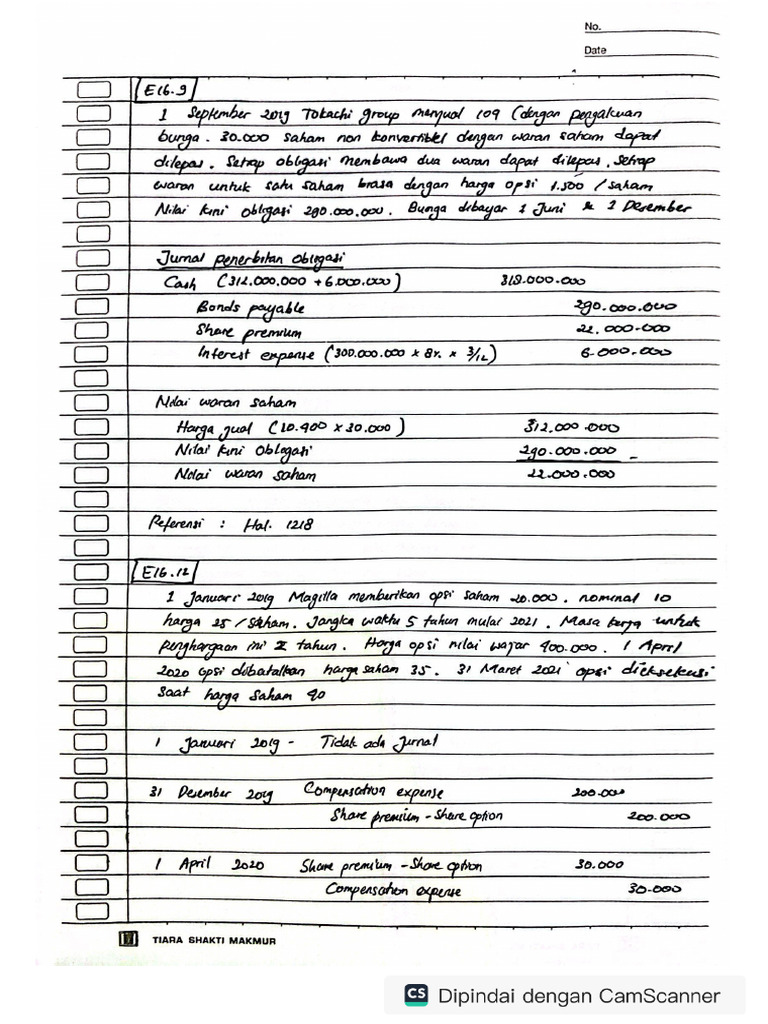 No.
Date
E16.9
1 September 2019 Tokachi group menjual 109 (dengan pengakuan
bunga. 30.000 saham non konvertibel dengan waran saham dapat
dilepas. Setiap obligasi membawa dua waran dapat dilepas, setiap
waran untuk satu saham biasa dengan harga opsi 1.500 / saham
Nilai kini obligasi 290.000.000. Bunga dibayar 1 Juni & 1 Desember
Jurnal penerbitan obligasi
Cash (312.000.000 + 6.000.000) 318.000.000
Bonds payable 290.000.000
Share premium 22.000.000
Interest expense (300.000.000 x 8% x 3/12) 6.000.000
Nilai waran saham
Harga jual (10.400 x 30.000) 312.000.000
Nilai kini obligasi 290.000.000 -
Nilai waran saham 22.000.000
Referensi : Hal. 1218
E16.12
1 Januari 2019 Magilla memberikan opsi saham 20.000. nominal 10
harga 25 / saham. Jangka waktu 5 tahun mulai 2021. Masa kerja untuk
penghargaan ini 2 tahun. Harga opsi nilai wajar 400.000. 1 April
2020 opsi dibatalkan harga saham 35. 31 Maret 2021 opsi dieksekusi
saat harga saham 40
1 Januari 2019 - Tidak ada Jurnal
31 Desember 2019 Compensation expense 200.000
Share premium - Share option 200.000
1 April 2020 Share premium - Share option 30.000
Compensation expense 30.000
TIARA SHAKTI MAKMUR
CS Dipindai dengan CamScanner